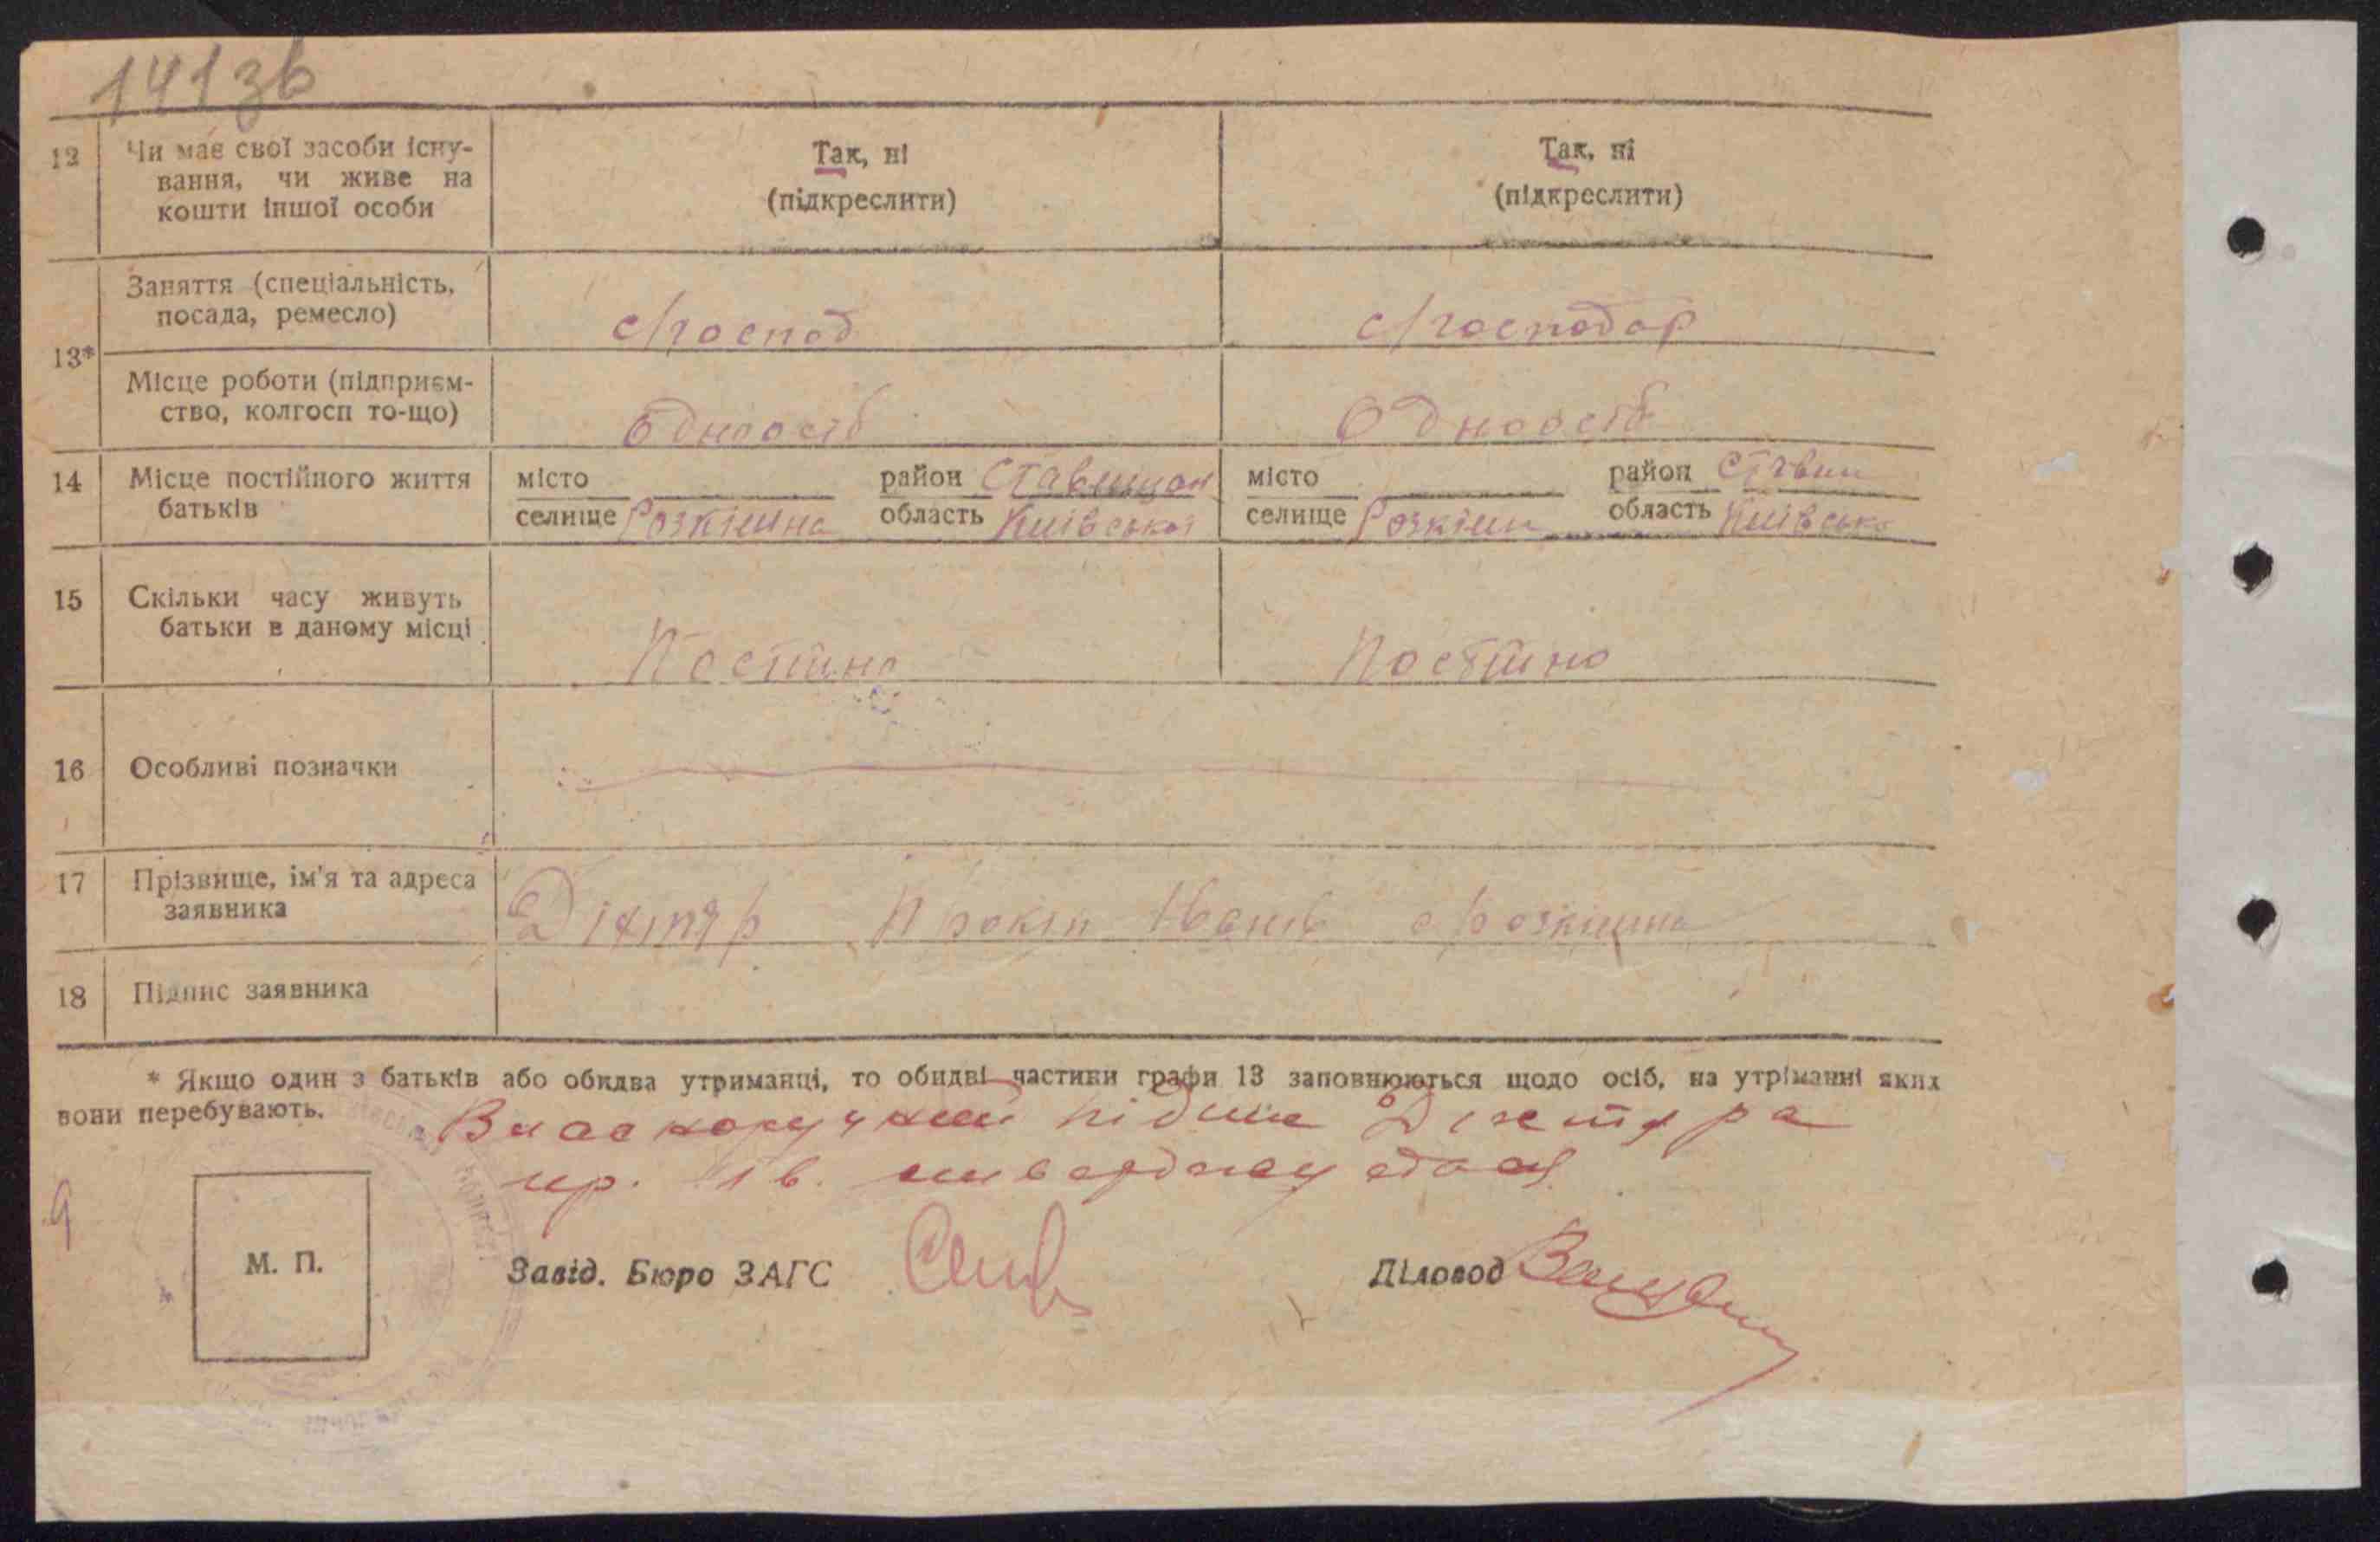 141зв
12 Чи має свої засоби існу- Так, ні Так, ні
вання, чи живе на (підкреслити) (підкреслити)
кошти іншої особи
13* Заняття (спеціальність,
посада, ремесло) с/господ с/господар
Місце роботи (підприєм-
ство, колгосп то-що) Одноосіб Одноосіб
14 Місце постійного життя місто район Ставищан місто район Стави
батьків селище Розкішна область Київської селище Розкішн область Київсько
15 Скільки часу живуть
батьки в даному місці Постійно Постійно
16 Особливі позначки
17 Прізвище, ім'я та адреса
заявника Діхтяр Прокіп Іванів с Розкішна
18 Підпис заявника
* Якщо один з батьків або обидва утриманці, то обидві частини графи 13 заповнюються щодо осіб, на утріманні яких
вони перебувають.
Власноручний підпис Діхтяра
пр. Ів.
М. П. Завід. Бюро ЗАГС Діловод